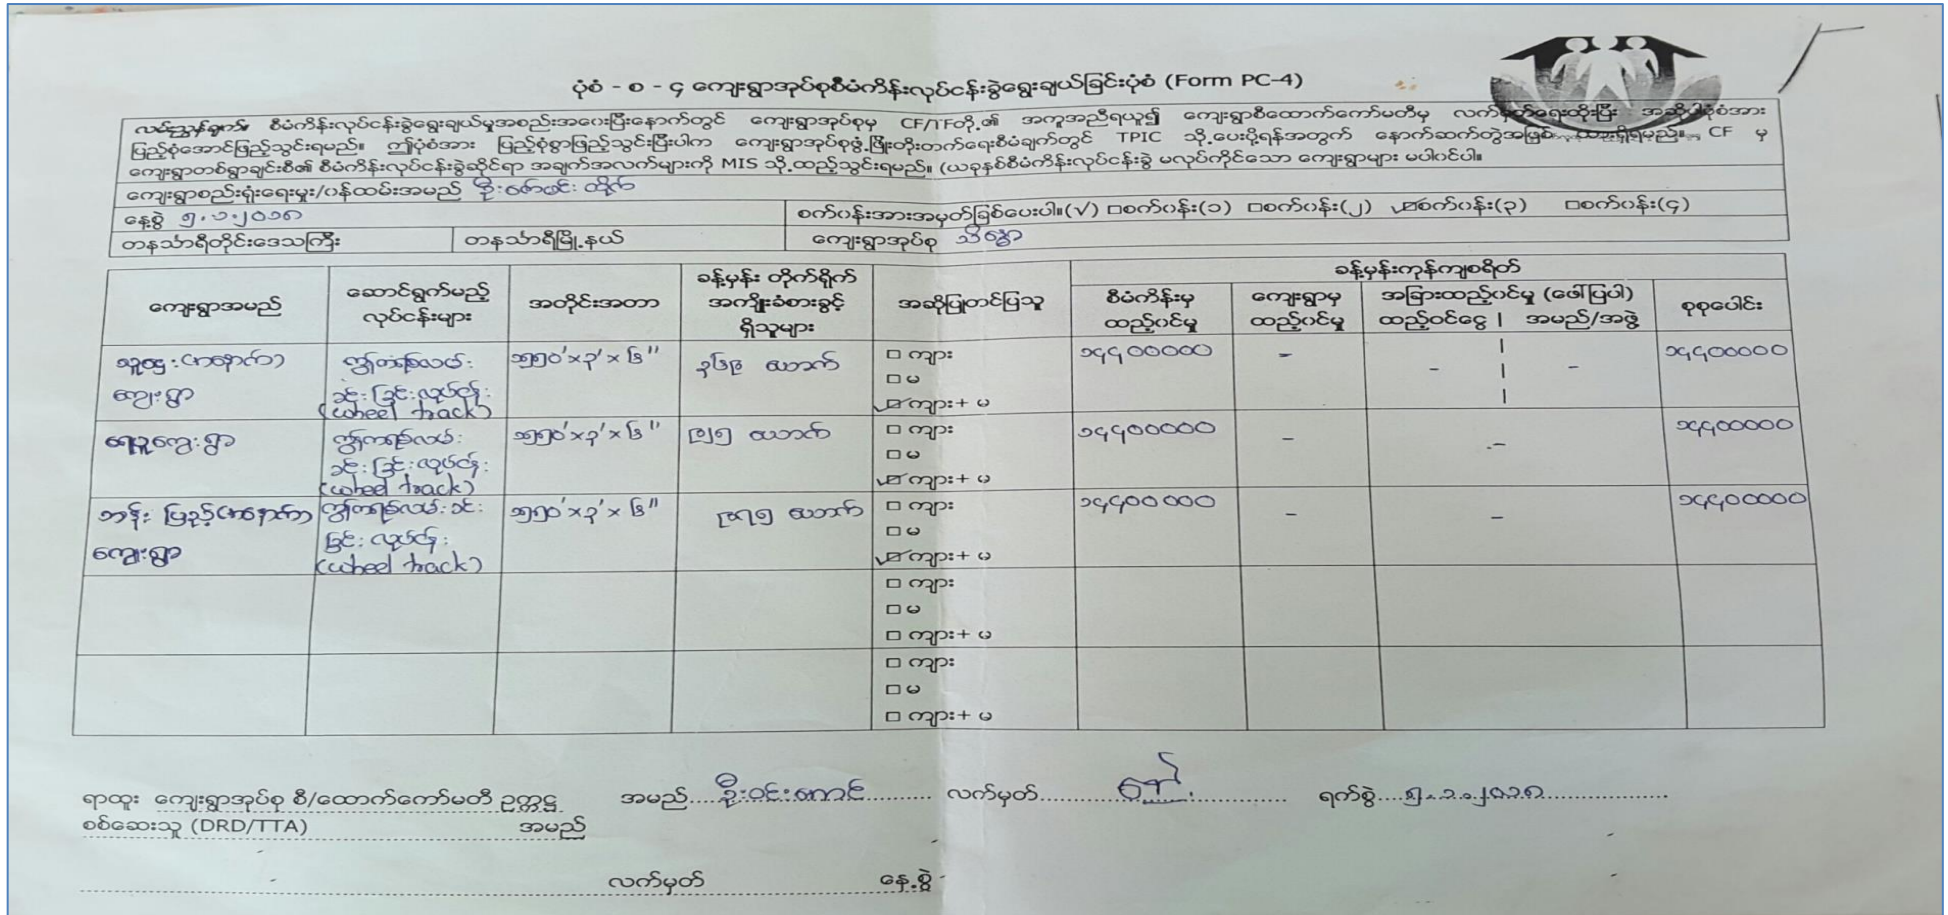 ပုံစံ - စ - ၄ ကျေးရွာအုပ်စုစီမံကိန်းလုပ်ငန်းခွဲရွေးချယ်ခြင်းပုံစံ (Form PC-4)
လမ်းညွှန်ချက်။ စီမံကိန်းလုပ်ငန်းခွဲရွေးချယ်မှုအစည်းအဝေးပြီးနောက်တွင် ကျေးရွာအုပ်စုမှ CF/TFတို့၏ အကူအညီရယူ၍ ကျေးရွာစီထောက်ကော်မတီမှ လက်မှတ်ရေးထိုးပြီး အဆိုပါပုံစံအား
ပြည့်စုံအောင်ဖြည့်သွင်းရမည်။ ဤပုံစံအား ပြည့်စုံစွာဖြည့်သွင်းပြီးပါက ကျေးရွာအုပ်စုဖွံ့ဖြိုးတိုးတက်ရေးစီမံချက်တွင် TPIC သို့ပေးပို့ရန်အတွက် နောက်ဆက်တွဲအဖြစ် ထားရှိရမည်။ CF မှ
ကျေးရွာတစ်ရွာချင်းစီ၏ စီမံကိန်းလုပ်ငန်းခွဲဆိုင်ရာ အချက်အလက်များကို MIS သို့ထည့်သွင်းရမည်။ (ယခုနှစ်စီမံကိန်းလုပ်ငန်းခွဲ မလုပ်ကိုင်သော ကျေးရွာများ မပါဝင်ပါ။
ကျေးရွာစည်းရုံးရေးမှူး/ဝန်ထမ်းအမည် ဦးဇော်ဝင်းထိုက်
နေ့စွဲ ၅.၁.၂၀၁၈ စက်ဝန်းအားအမှတ်ခြစ်ပေးပါ။(√) □စက်ဝန်း(၁) □စက်ဝန်း(၂) ☑စက်ဝန်း(၃) □စက်ဝန်း(၄)
တနင်္သာရီတိုင်းဒေသကြီး တနင်္သာရီမြို့နယ် ကျေးရွာအုပ်စု
ကျေးရွာအမည် ဆောင်ရွက်မည့် လုပ်ငန်းများ အတိုင်းအတာ ခန့်မှန်း တိုက်ရိုက် အကျိုးခံစားခွင့် ရှိသူများ အဆိုပြုတင်ပြသူ ခန့်မှန်းကုန်ကျစရိတ်
စီမံကိန်းမှ ထည့်ဝင်မှု ကျေးရွာမှ ထည့်ဝင်မှု အခြားထည့်ဝင်မှု (ဖေါ်ပြပါ) ထည့်ဝင်ငွေ | အမည်/အဖွဲ့ စုစုပေါင်း
ကျေးရွာ ကွန်ကရစ်လမ်း ၁၅၅၀'×၃'×၆" ယောက် □ ကျား ၁၄၄၀၀၀၀၀ - - - ၁၄၄၀၀၀၀၀
ခင်းခြင်းလုပ်ငန်း □ မ
(wheel track) ☑ ကျား+ မ
ရေပူကျေးရွာ ကွန်ကရစ်လမ်း ၁၅၅၀'×၃'×၆" ယောက် □ ကျား ၁၄၄၀၀၀၀၀ - - ၁၄၄၀၀၀၀၀
ခင်းခြင်းလုပ်ငန်း □ မ
(wheel track) ☑ ကျား+ မ
ကွန်ကရစ်လမ်းခင်း ၁၅၅၀'×၃'×၆" ယောက် □ ကျား ၁၄၄၀၀၀၀၀ - - ၁၄၄၀၀၀၀၀
ကျေးရွာ ခြင်းလုပ်ငန်း □ မ
(wheel track) ☑ ကျား+ မ
□ ကျား
□ မ
□ ကျား+ မ
□ ကျား
□ မ
□ ကျား+ မ
ရာထူး ကျေးရွာအုပ်စု စီ/ထောက်ကော်မတီ ဥက္ကဋ္ဌ အမည် ဦးဝင်းအောင် လက်မှတ် ရက်စွဲ ၅.၁.၂၀၁၈
စစ်ဆေးသူ (DRD/TTA) အမည်
လက်မှတ် နေ့စွဲ